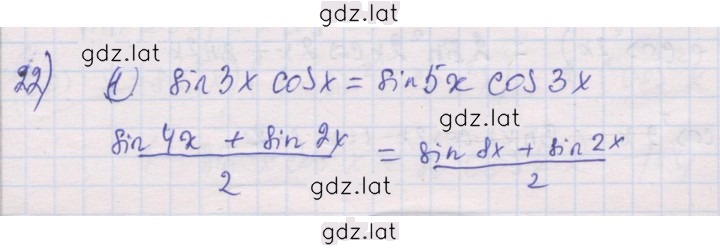 gdz.lat
22) 1) sin 3x cos x = sin 5x cos 3x
gdz.lat
sin 4x + sin 2x / 2 = sin 8x + sin 2x / 2
gdz.lat
gdz.lat